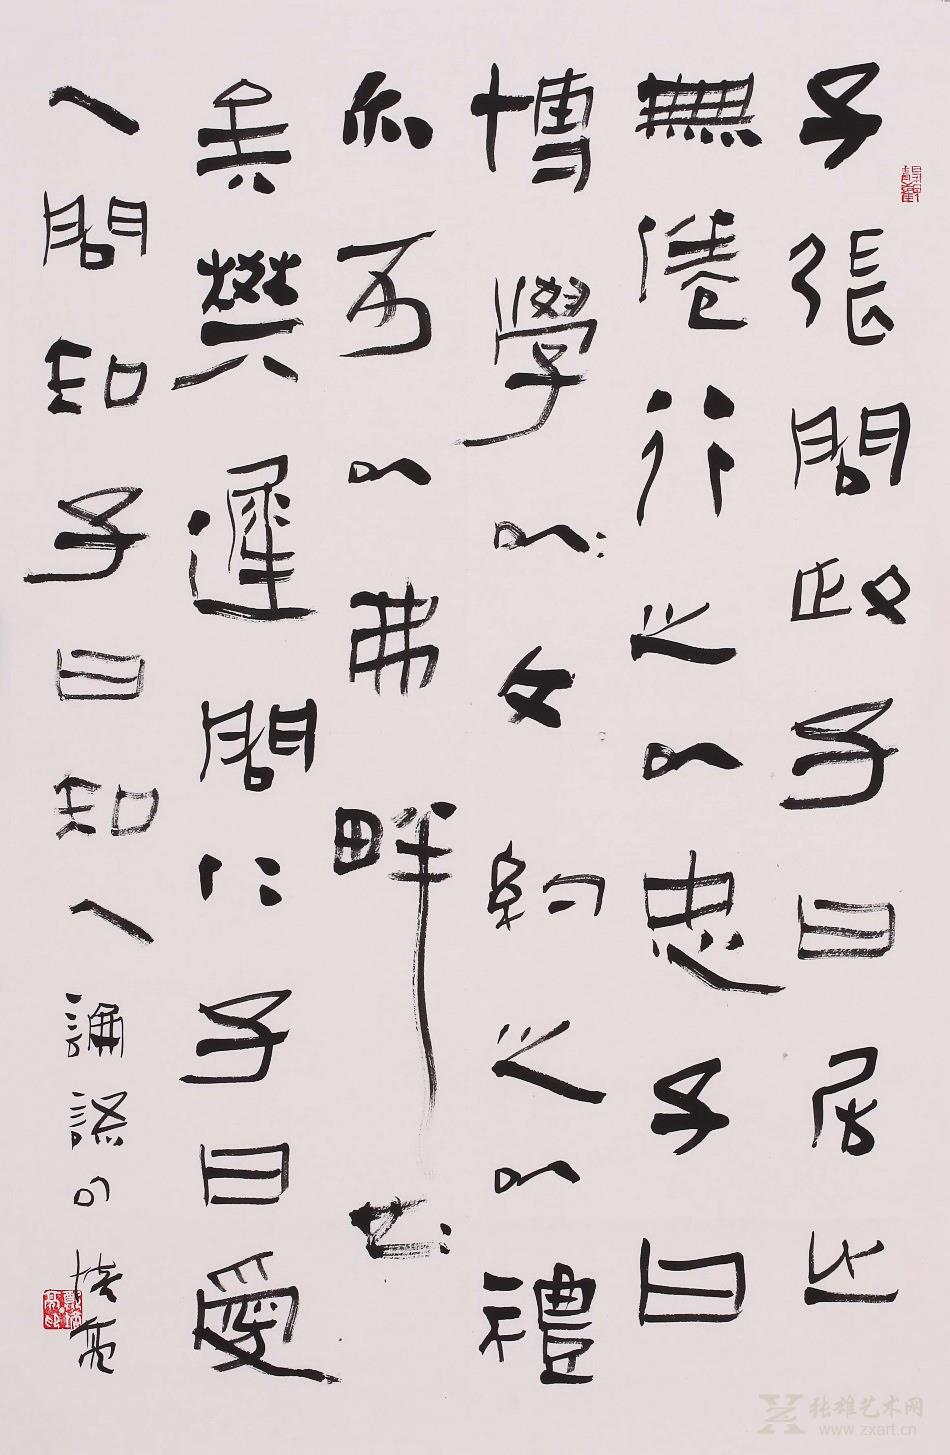 子張問政子曰居之
無倦行之以忠子曰
博學以文約之以禮
亦可以弗畔也
矣樊遲問仁子曰愛
人問知子曰知人論語句培亮
张雄艺术网
www.zxart.cn